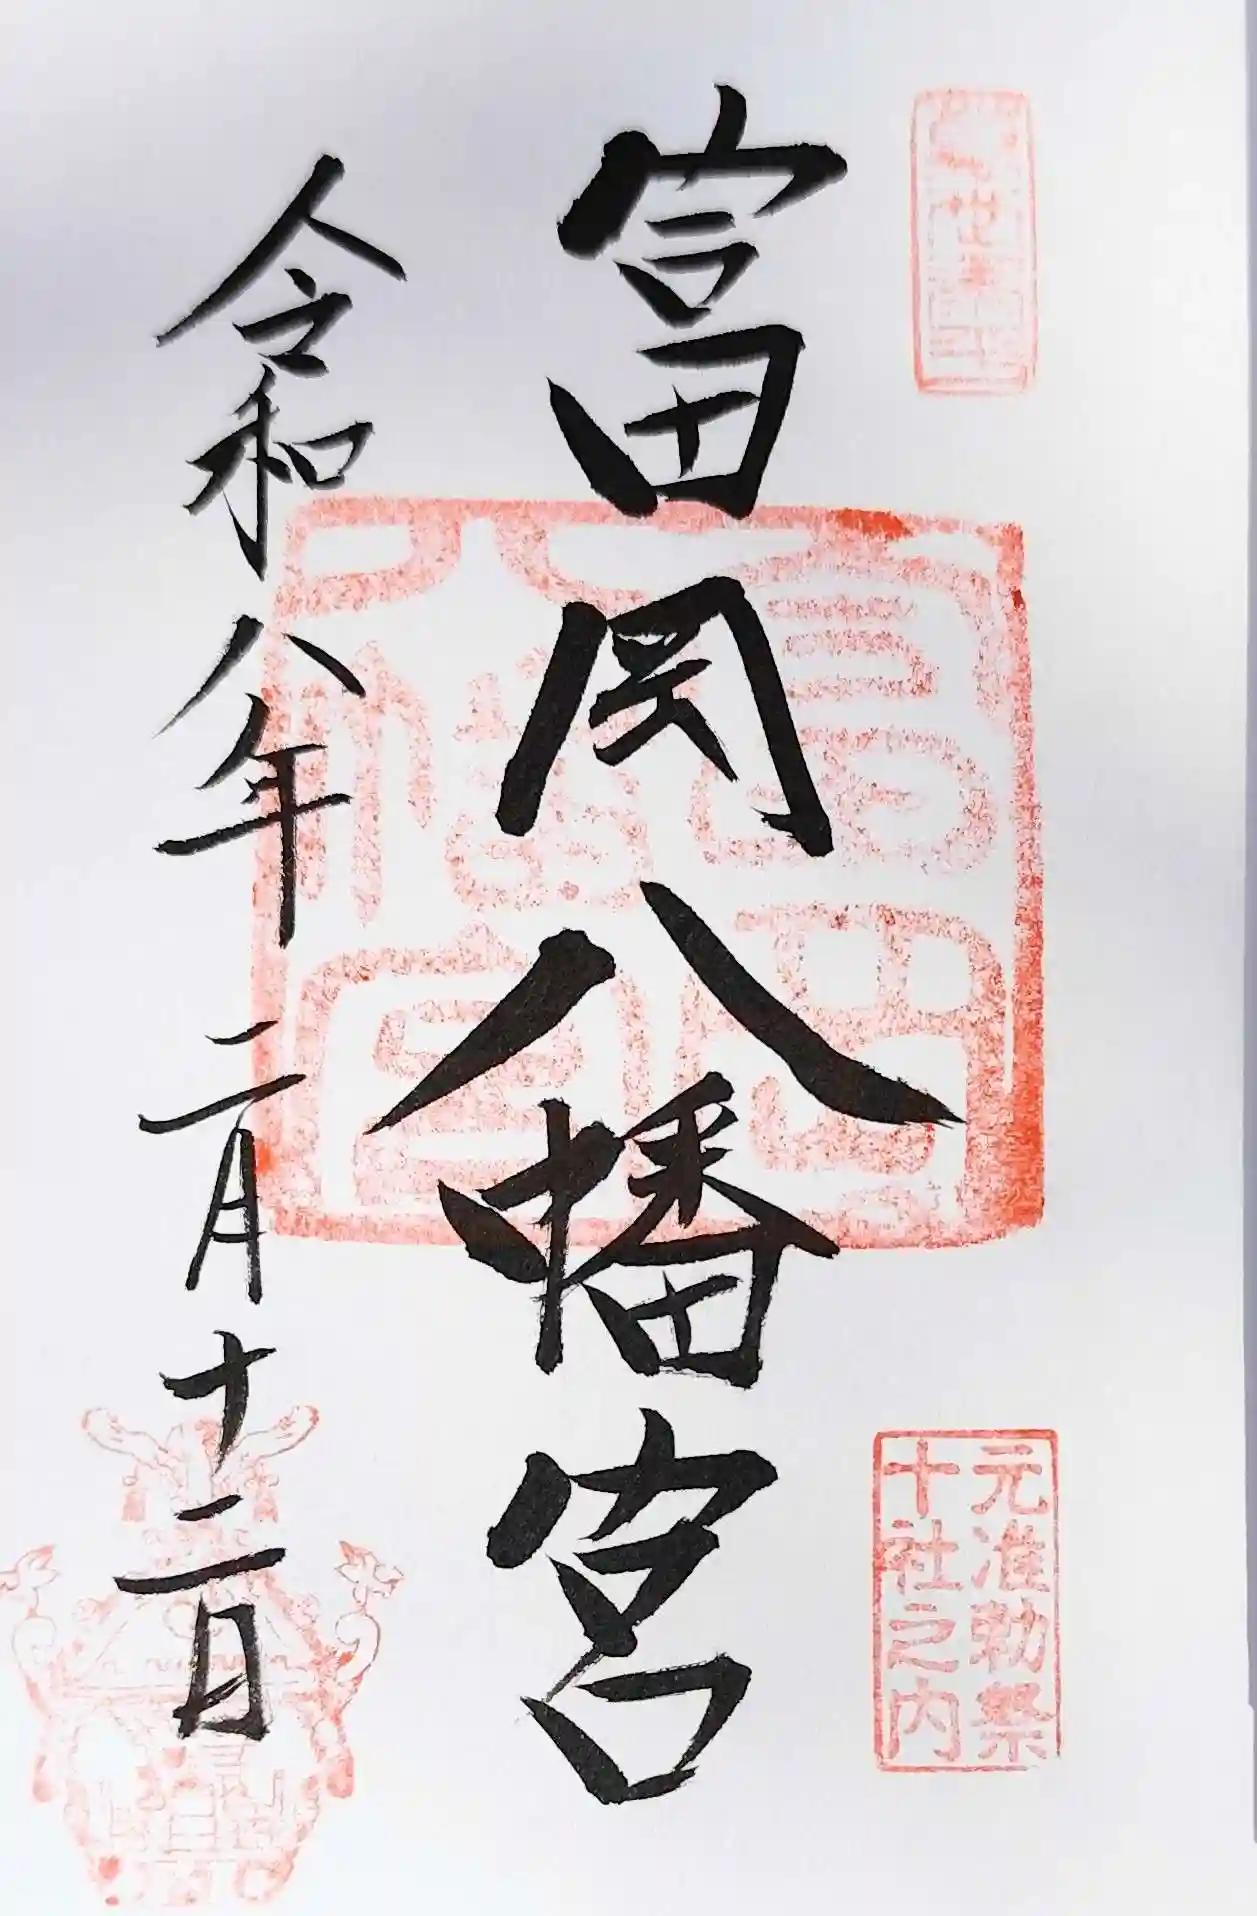 富岡八幡宮
令和八年二月十二日
元准勅祭
十社之内